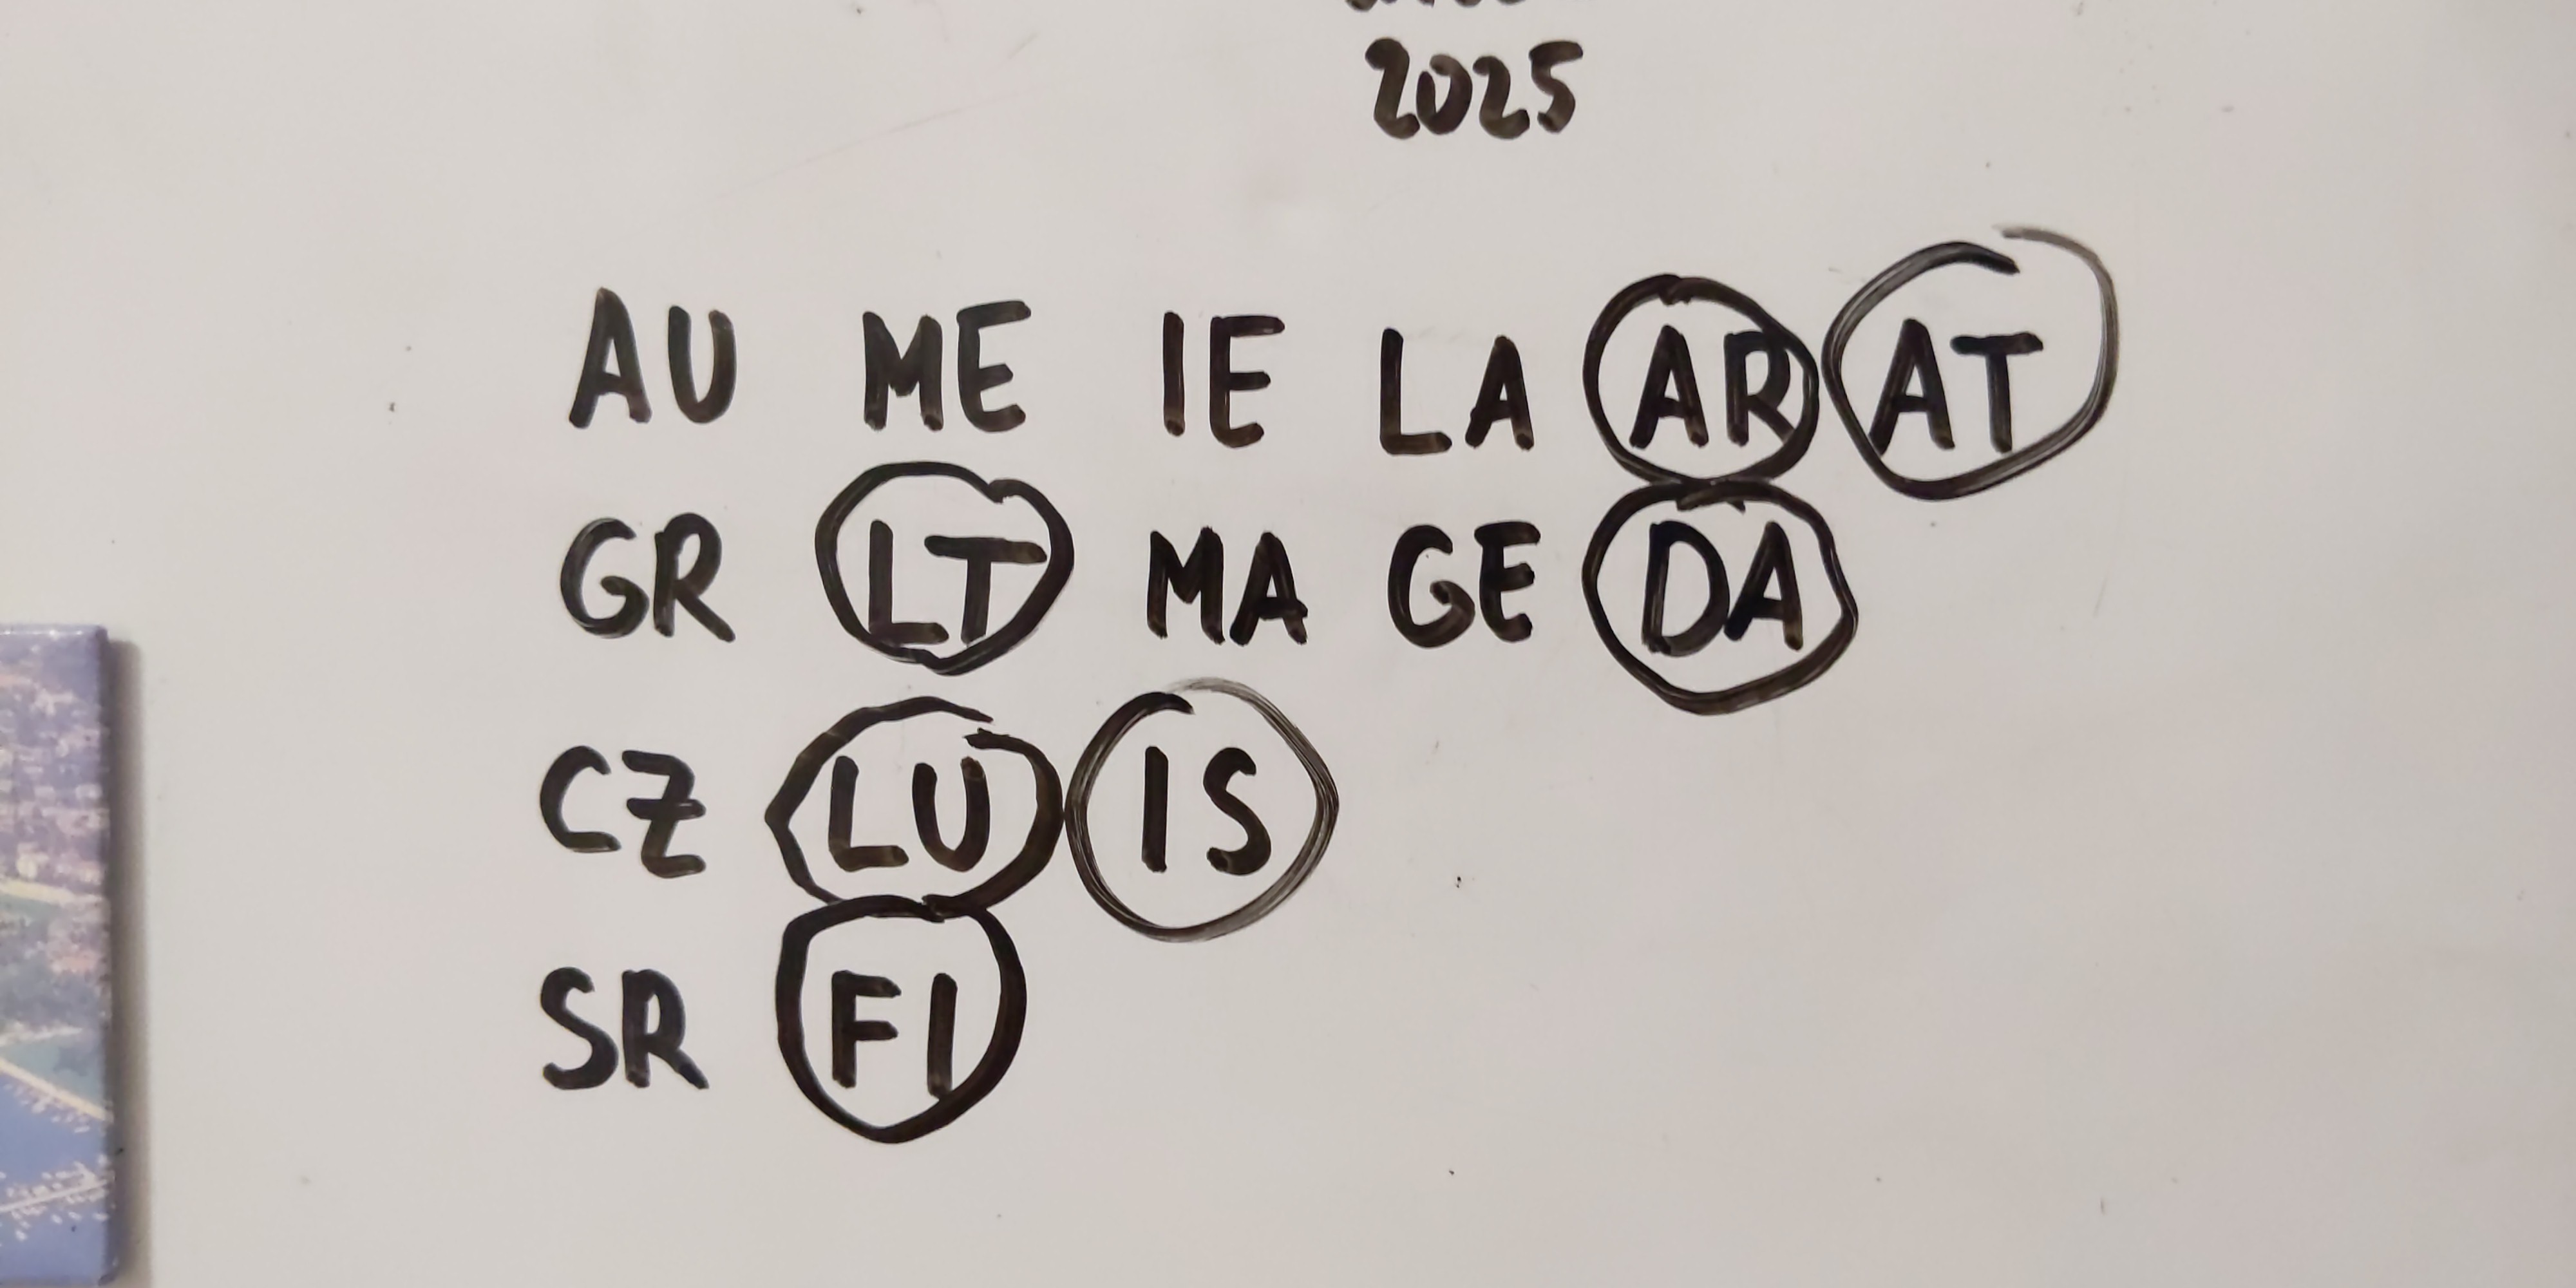 2025
AU ME IE LA AR AT
GR LT MA GE DA
CZ LU IS
SR FI